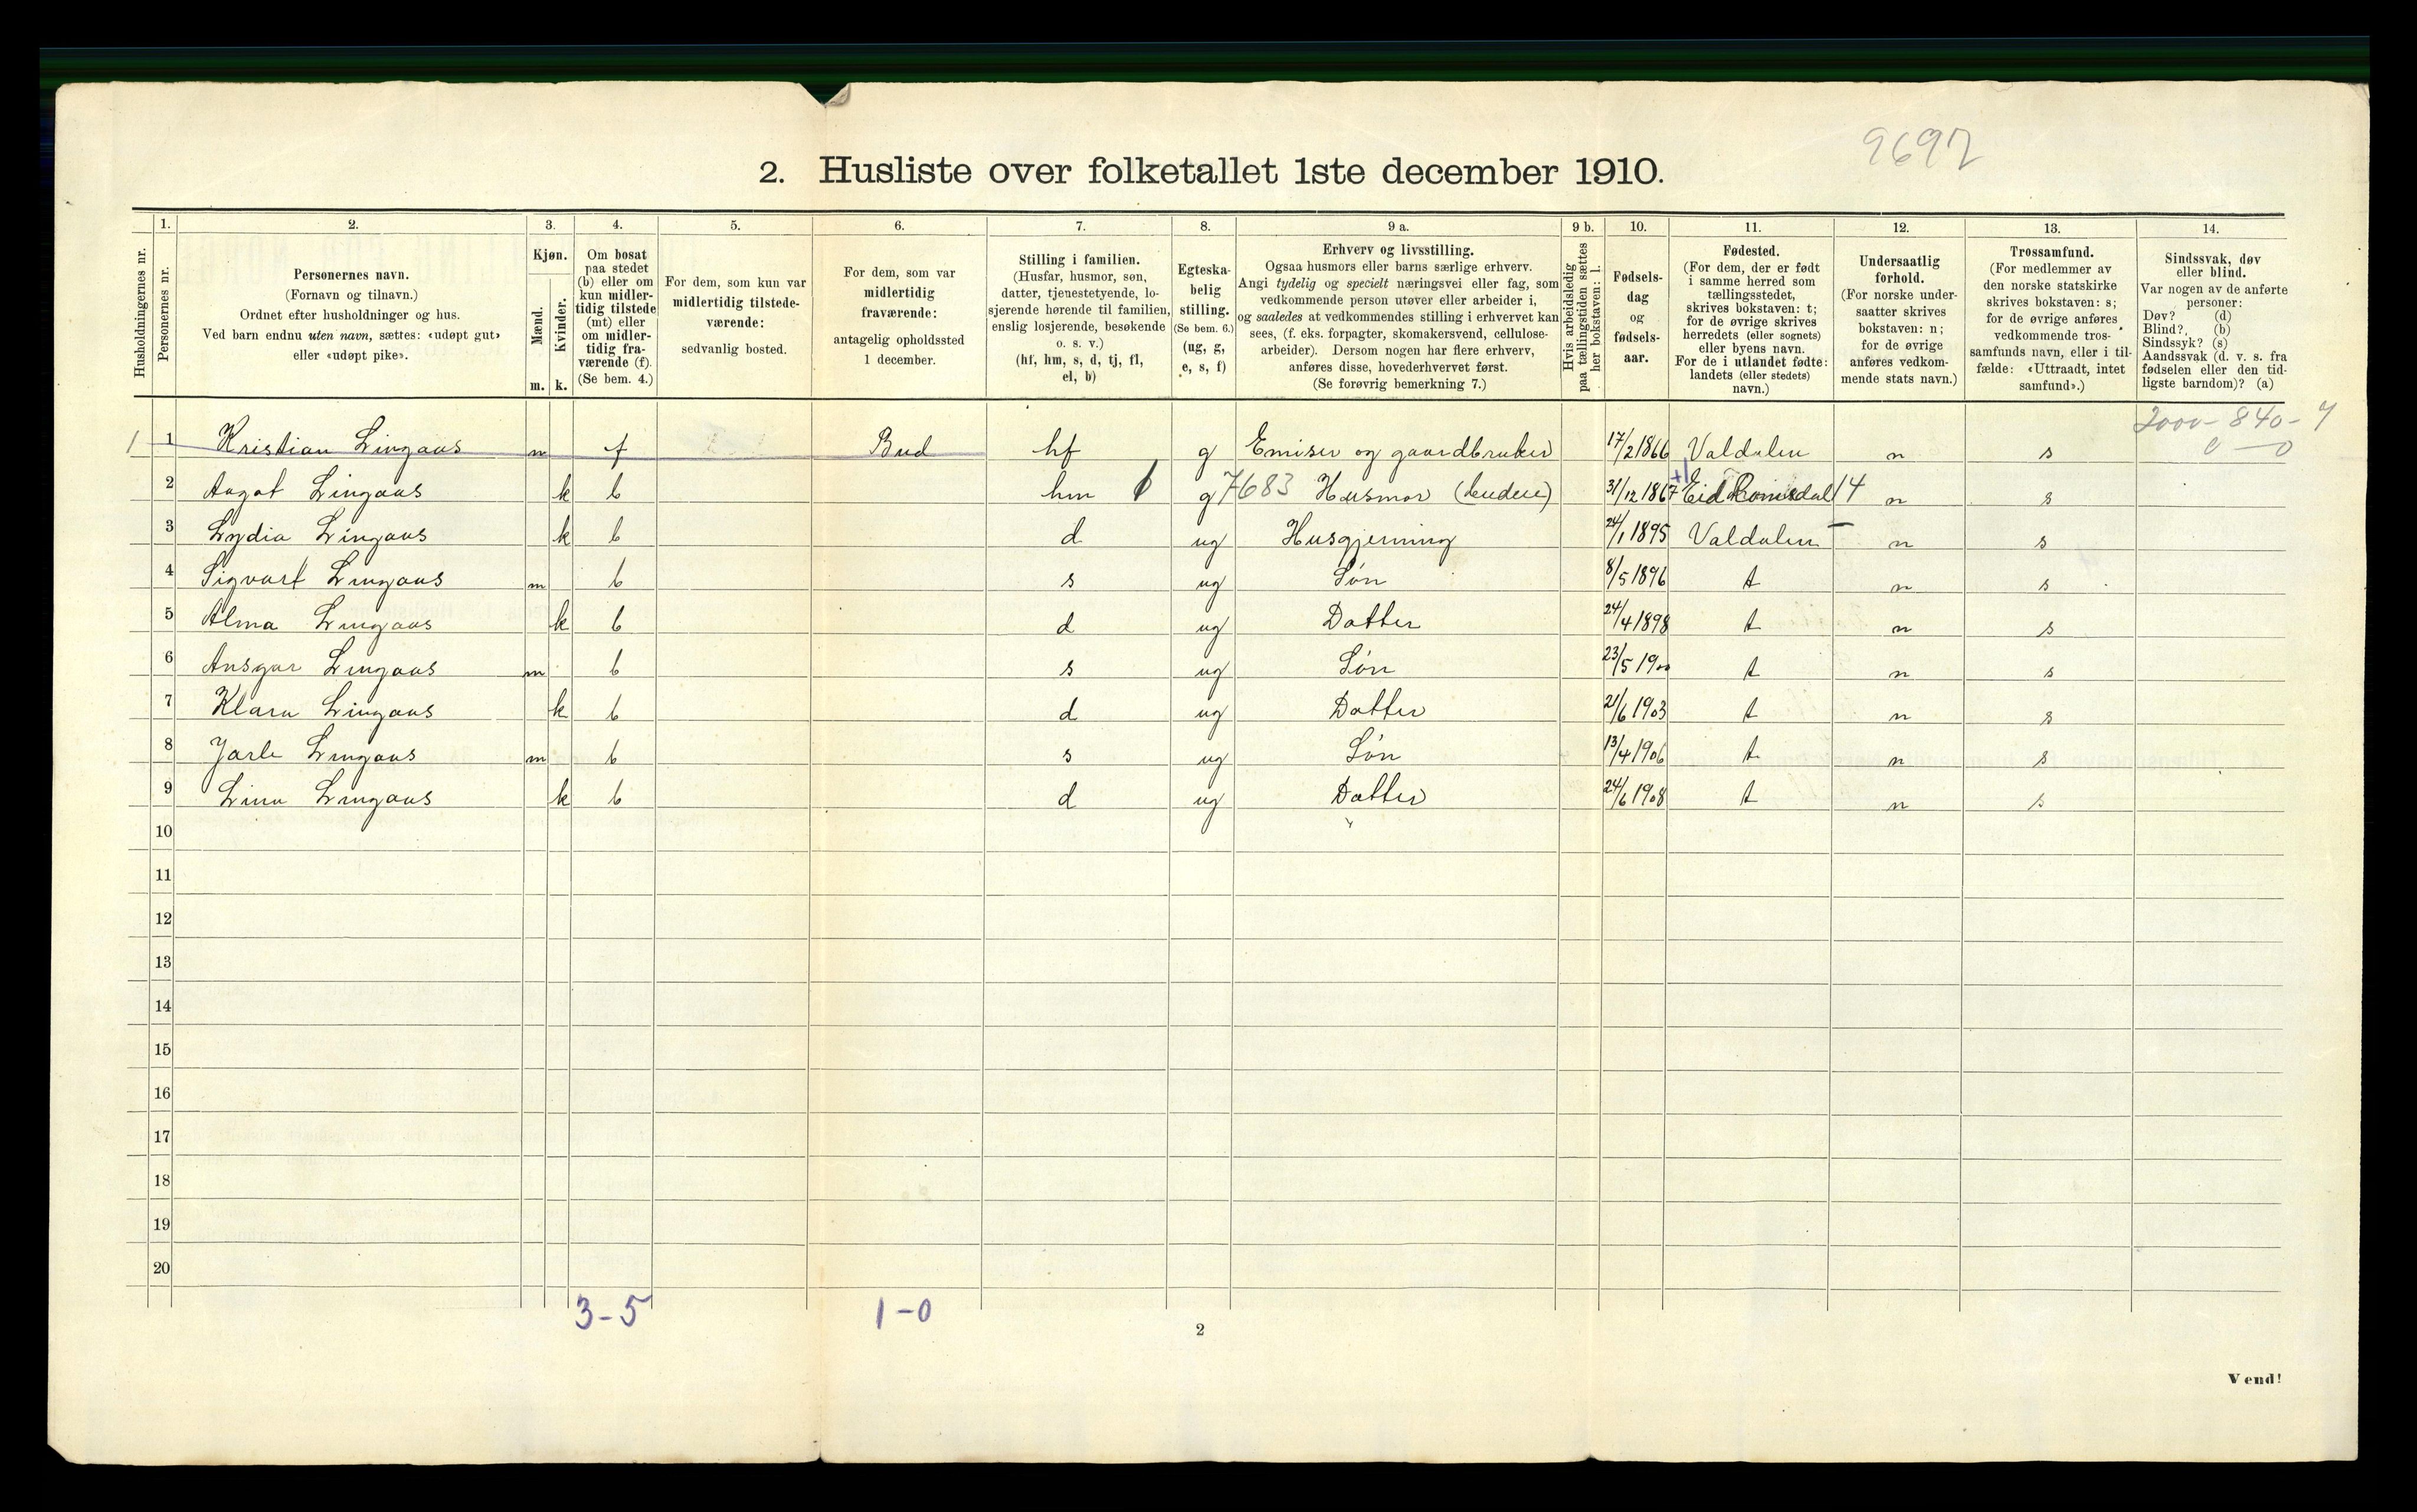 9697
2. Husliste over folketallet 1ste december 1910.
Husholdningernes nr.
1.
Personernes nr.
2.
Personernes navn.
(Fornavn og tilnavn.)
Ordnet efter husholdninger og hus.
Ved barn endnu uten navn, sættes: «udøpt gut»
eller «udøpt pike».
3.
Kjøn.
Mænd.
m.
Kvinder.
k.
4.
Om bosat
paa stedet
(b) eller om
kun midler-
tidig tilstede
(mt) eller
om midler-
tidig fra-
værende (f).
(Se bem. 4.)
5.
For dem, som kun var
midlertidig tilstede-
værende:
sedvanlig bosted.
6.
For dem, som var
midlertidig
fraværende:
antagelig opholdssted
1 december.
7.
Stilling i familien.
(Husfar, husmor, søn,
datter, tjenestetyende, lo-
sjerende hørende til familien,
enslig losjerende, besøkende
o. s. v.)
(hf, hm, s, d, tj, fl,
el, b)
8.
Egteska-
belig
stilling.
(Se bem. 6.)
(ug, g,
e, s, f)
9 a.
Erhverv og livsstilling.
Ogsaa husmors eller barns særlige erhverv.
Angi tydelig og specielt næringsvei eller fag, som
vedkommende person utøver eller arbeider i,
og saaledes at vedkommendes stilling i erhvervet kan
sees, (f. eks. forpagter, skomakersvend, cellulose-
arbeider). Dersom nogen har flere erhverv,
anføres disse, hovederhvervet først.
(Se forøvrig bemerkning 7.)
9 b.
Hvis arbeidsledig
paa tællingstiden sættes
her bokstaven: l.
10.
Fødsels-
dag
og
fødsels-
aar.
11.
Fødested.
(For dem, der er født
i samme herred som
tællingsstedet,
skrives bokstaven: t;
for de øvrige skrives
herredets (eller sognets)
eller byens navn.
For de i utlandet fødte:
landets (eller stedets)
navn.)
12.
Undersaatlig
forhold.
(For norske under-
saatter skrives
bokstaven: n;
for de øvrige
anføres vedkom-
mende stats navn.)
13.
Trossamfund.
(For medlemmer av
den norske statskirke
skrives bokstaven: s;
for de øvrige anføres
vedkommende tros-
samfunds navn, eller i til-
fælde: «Uttraadt, intet
samfund».)
14.
Sindssvak, døv
eller blind.
Var nogen av de anførte
personer:
Døv? (d)
Blind? (b)
Sindssyk? (s)
Aandssvak (d. v. s. fra
fødselen eller den tid-
ligste barndom)? (a)
2000-840-4
0 — 0
1 1 Kristian Lingaas m f Bud hf g Emisær og gaardbruker 17/2 1866 Valdalen n s
2 Aagot Lingaas k b hm 1 g 7683 Husmor 31/12 1867 Eid Romsdal 14 n s
3 Lydia Lingaas k b d ug Husgjerning 24/1 1895 Valdalen n s
4 Sigvart Lingaas m b s ug Søn 8/5 1896 t n s
5 Alma Lingaas k b d ug Datter 24/4 1898 t n s
6 Ansgar Lingaas m b s ug Søn 23/5 1900 t n s
7 Klara Lingaas k b d ug Datter 21/6 1903 t n s
8 Jarle Lingaas m b s ug Søn 13/4 1906 t n s
9 Lina Lingaas k b d ug Datter 24/6 1908 t n s
10
11
12
13
14
15
16
17
18
19
20
3-5 1-0
2
Vend!